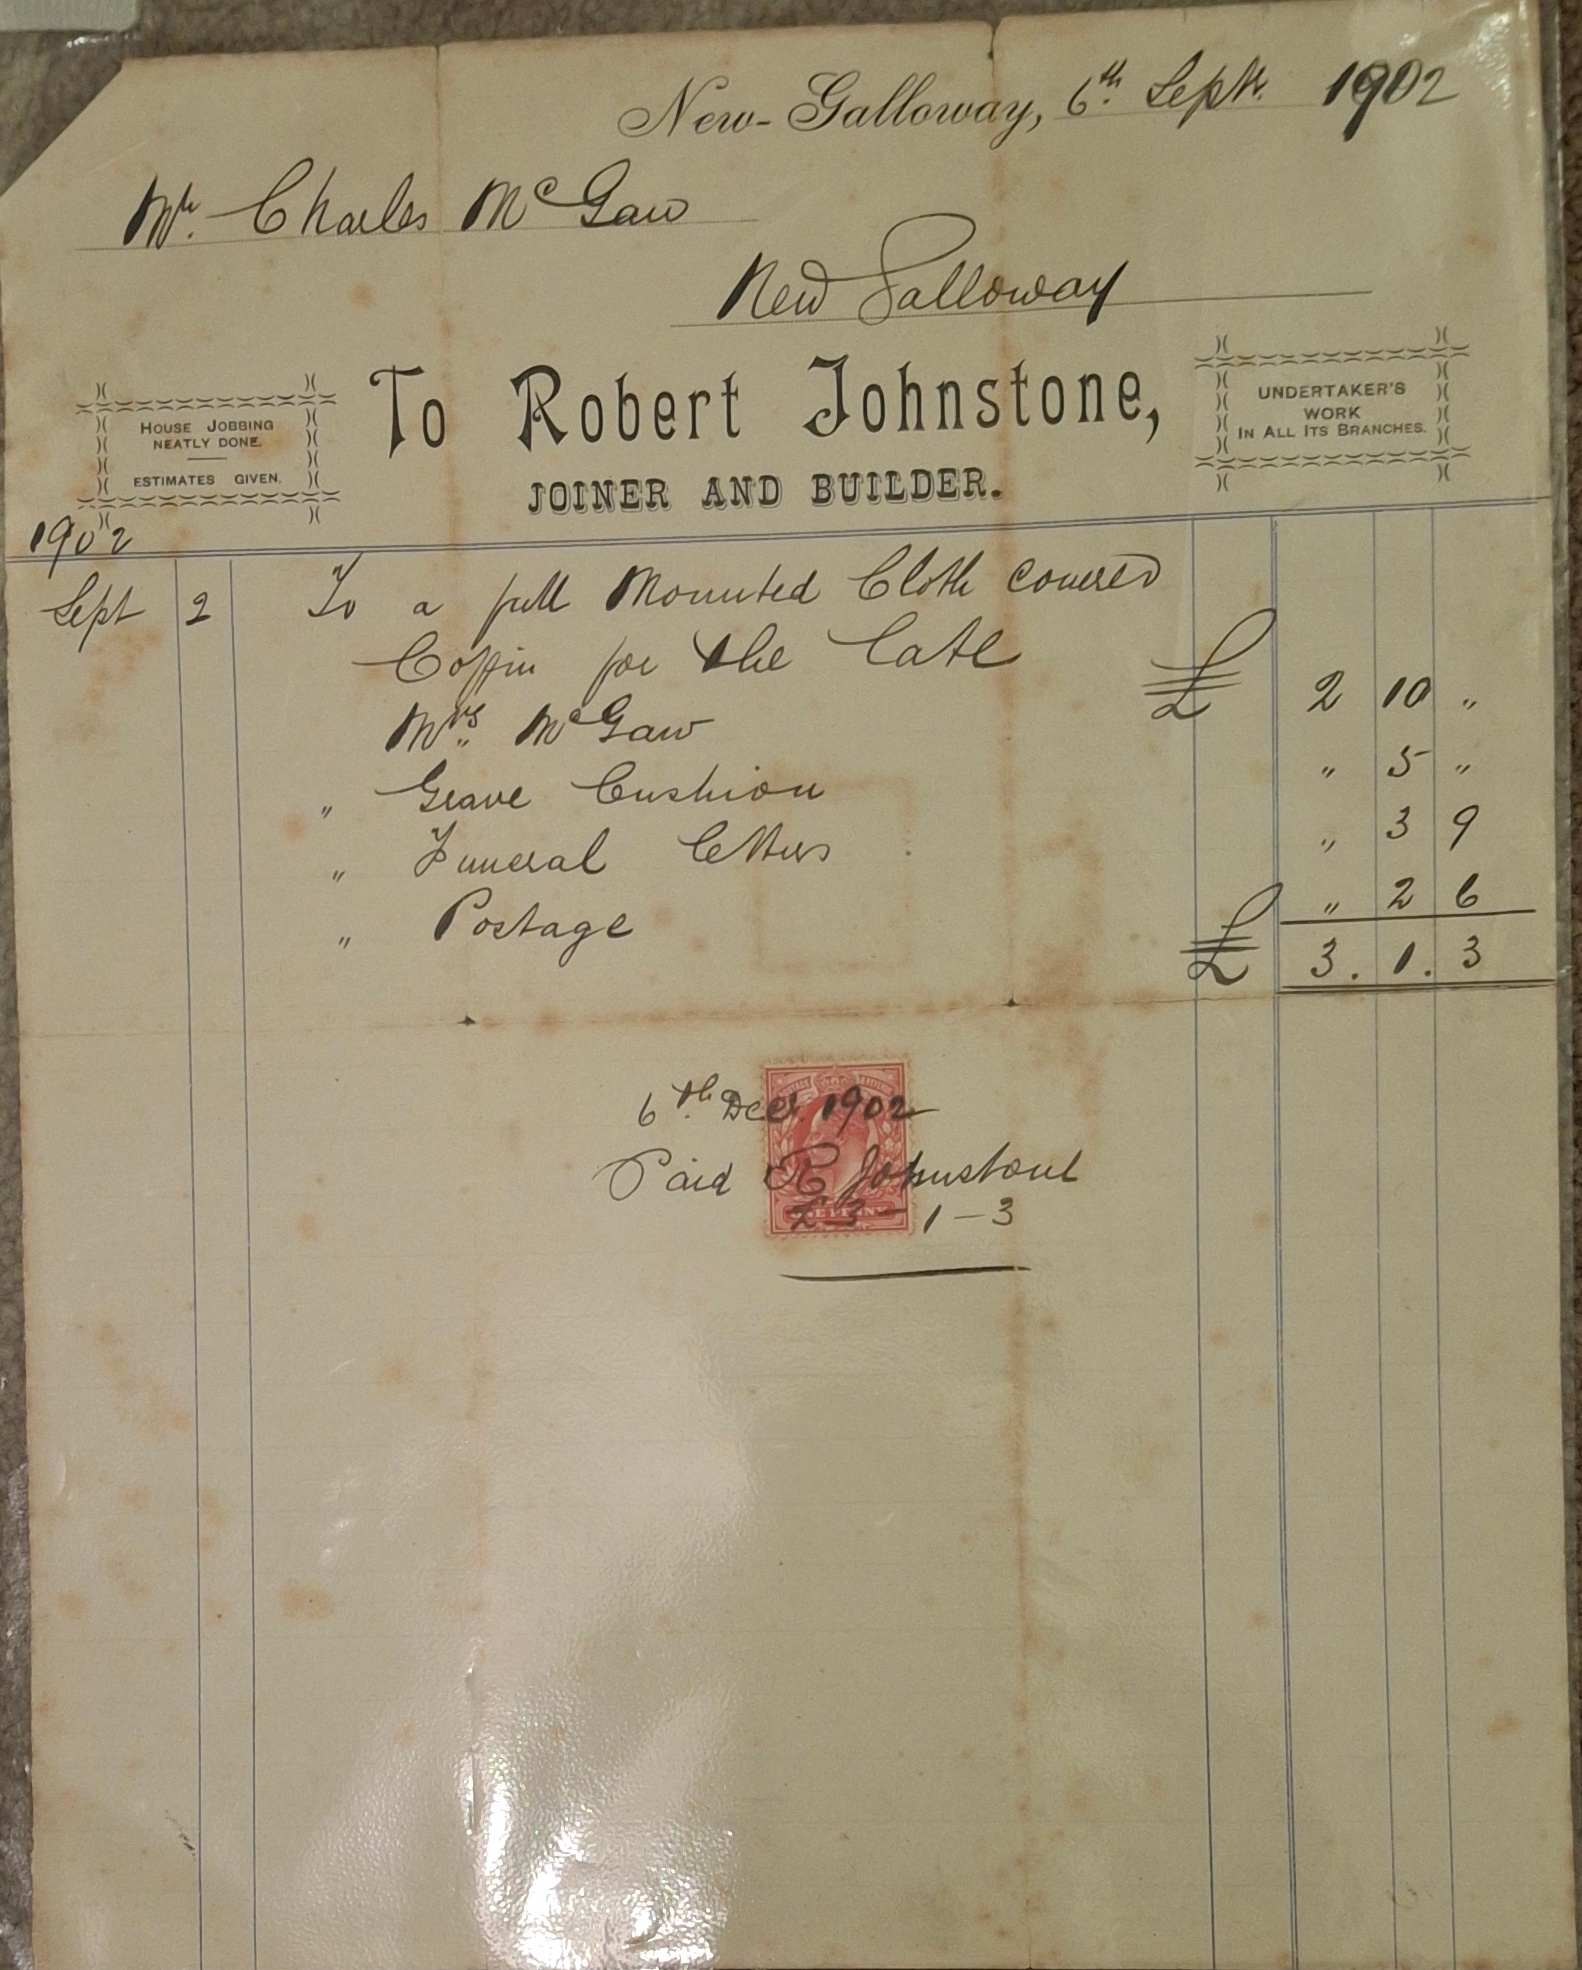 New-Galloway, 6th. Septr. 1902
Mr. Charles McGaw
New Galloway
HOUSE JOBBING
NEATLY DONE.
ESTIMATES GIVEN.
To Robert Johnstone,
JOINER AND BUILDER.
UNDERTAKER'S
WORK
IN ALL ITS BRANCHES.
1902
Sept 2 To a full Mounted Cloth covered
Coffin for the late
Mrs McGaw £ 2 10 "
" Grave Cushion " 5 "
" Funeral letters " 3 9
" Postage " 2 6
£ 3. 1. 3
6th. Decr. 1902
Paid R Johnstone
£3-1-3
ONE PENNY